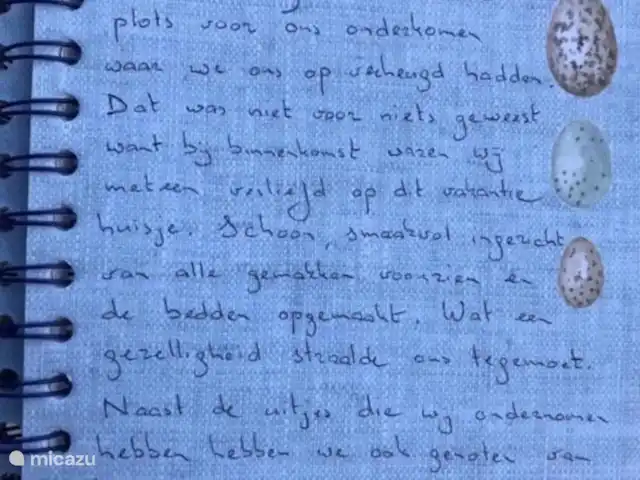 plots voor ons onderkomen
waar we ons op verheugd hadden.
Dat was niet voor niets geweest
want bij binnenkomst waren wij
meteen verliefd op dit vakantie
huisje. Schoon, smaakvol ingericht
van alle gemakken voorzien en
de bedden opgemaakt. Wat een
gezelligheid straalde ons tegemoet.
Naast de uitjes die wij ondernomen
hebben hebben we ook genoten van
micazu